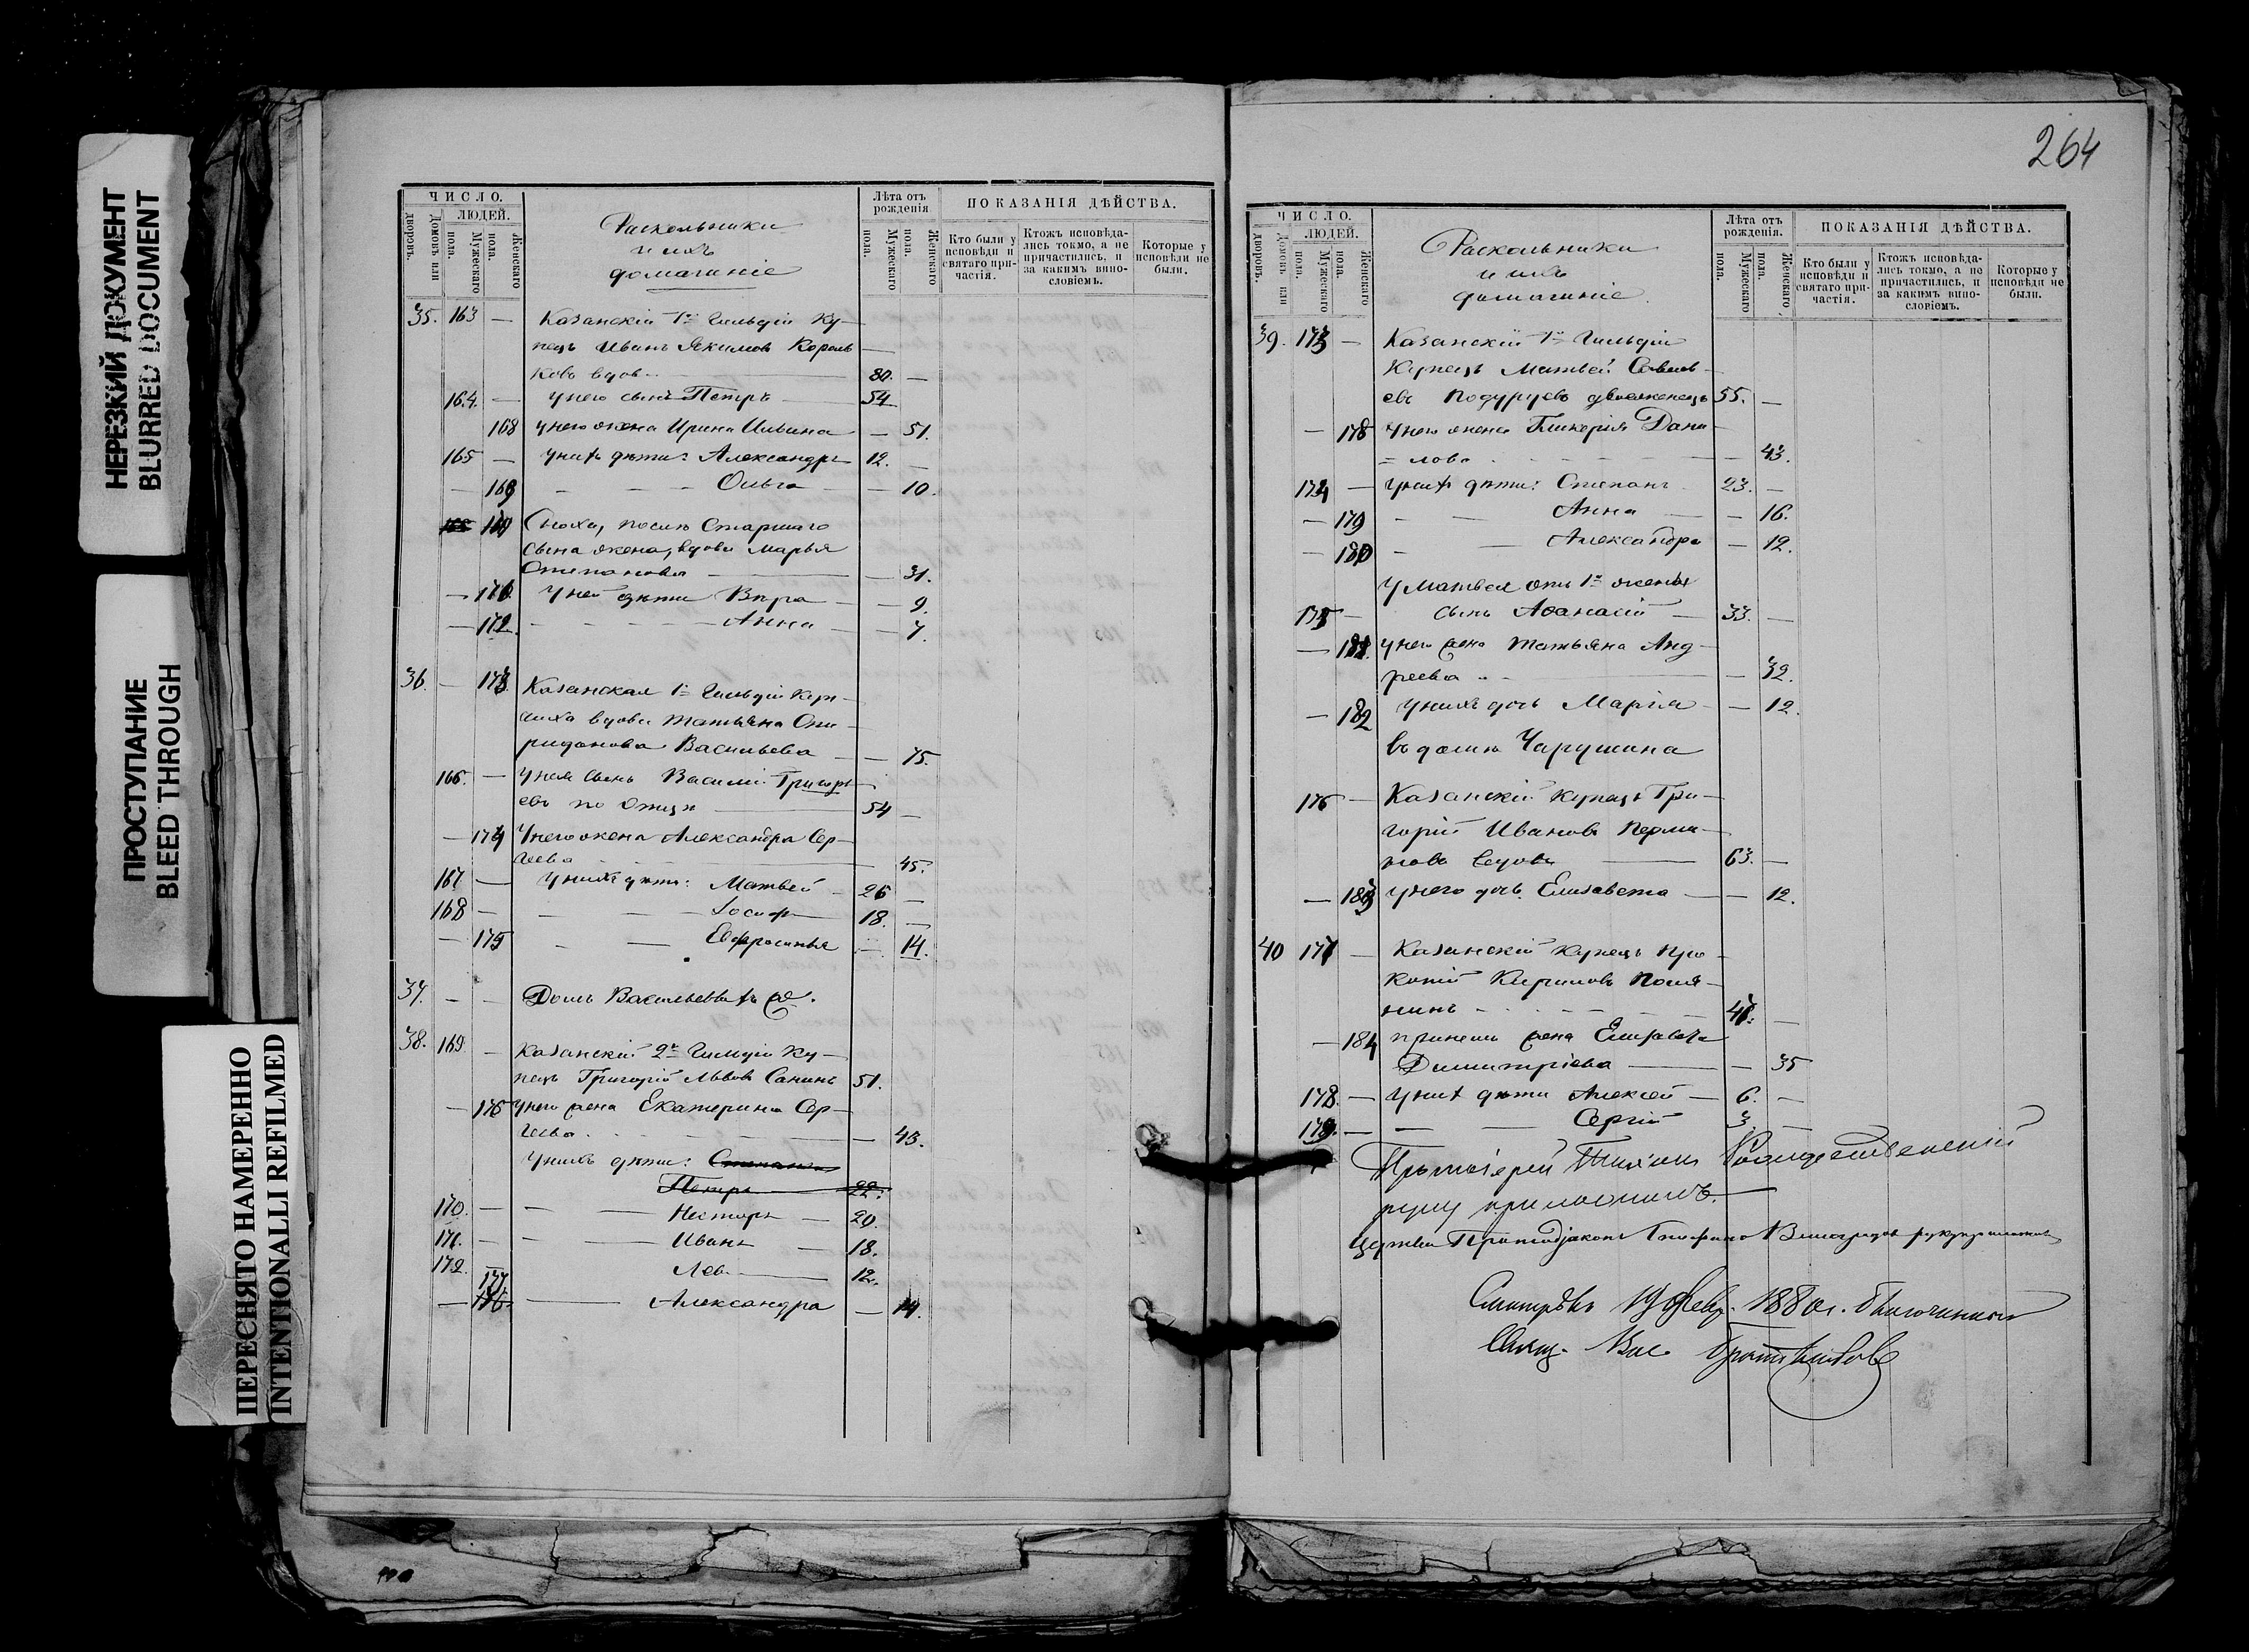 НЕРЕЗКИЙ ДОКУМЕНТ
BLURRED DOCUMENT
ПРОСТУПАНИЕ
BLEED THROUGH
ПЕРЕСНЯТО НАМЕРЕННО
INTENTIONALLI REFILMED
ЧИСЛО.
Домовъ или дворовъ.
ЛЮДЕЙ.
Мужескаго пола.
Женскаго пола.
Раскольники
и ихъ
домашніе
Лѣта отъ рожденія
Мужескаго пола.
Женскаго пола.
ПОКАЗАНІЯ ДѢЙСТВА.
Кто были у исповѣди и святаго при-частія.
Ктожъ исповѣда-лись токмо, а не причастились, и за какимъ вино-словіемъ.
Которые у исповѣди не были.
35. 163 — Казанскій 1й Гильдіи Ку-
пецъ Иванъ Якимовъ Король
ковъ вдов — 80. —
164. — У него сынъ Петръ — 54
168 У него жена Ирина Ильина — 51.
165 — У нихъ дѣти: Александръ 12. —
— 169 — — — Ольга — 10.
Сноха, послѣ Старшаго
сына жена, вдова Марья
Степанова — — 31.
— У ней дѣти Вѣра — — 9.
— 172. — — — Анна — — 7.
36. — 173. Казанская 1й Гильдіи Куп-
чиха вдова Татьяна Спи-
ридонова Васильева — — 75.
166. — У нея сынъ Василій Григорь
евъ по Отцѣ — 54 —
— 174 У него жена Александра Сер-
геева — 45.
167 — У нихъ дѣти: Матвей — 26 —
168 — — — Іосифъ — 18. —
— 175 — — Евфросинья — 14.
37. — — Домъ Васильевыхъ
38. 169. — Казанскій 2й Гильдіи Ку-
пецъ Григорій Львовъ Санинъ 51.
— 176 У него жена Екатерина Сер-
геева. — — 43.
У нихъ дѣти: Степанъ
Петръ 22.
170. — — Несторъ — 20.
171. — — Иванъ — 18.
172. Левъ — 12.
— 177 — Александра — 14.
264
ЧИСЛО.
Домовъ или дворовъ.
ЛЮДЕЙ.
Мужескаго пола.
Женскаго пола.
Раскольники
и ихъ
домашніе.
Лѣта отъ рожденія.
Мужескаго пола.
Женскаго пола.
ПОКАЗАНІЯ ДѢЙСТВА.
Кто были у исповѣди и святаго при-частія.
Ктожъ исповѣда-лись токмо, а не причастились, и за какимъ вино-словіемъ.
Которые у исповѣди не были.
39. 173 — Казанскій 1й Гильдіи
Купецъ Матвей Савель-
евъ Подуруевъ двоеженецъ 55. —
— 178 У него жена Гликерія Дани-
= лова — 43.
174 — У нихъ дѣти: Степанъ 23. —
— 179 — — Анна — — 16.
— 180 — — Александра — 12.
У Матвея отъ 1й жены
175 — сынъ Афанасій — 33. —
— 181. У него жена Татьяна Анд-
реева — — 32.
— 182 У нихъ дочь Марія — — 12.
Въ домѣ Чарушина
176 — Казанскій купецъ Гри-
горій Ивановъ
вдовъ — 63. —
— 183 У него дочь Елизавета — — 12.
40 177 — Казанскій Купецъ Про-
копій Кириловъ Поля-
нинъ —
— 184 При немъ жена
Димитріева — — 35
178. — У нихъ дѣти Алексей — 6. —
179. — — — Сергій 3 —
Протоіерей Тихонъ Рождественскій
руку приложилъ.
Протодіаконъ Виноградовъ руку приложилъ
Смотрѣлъ 19 Февр. 1880 г. Благочинный
Вас.